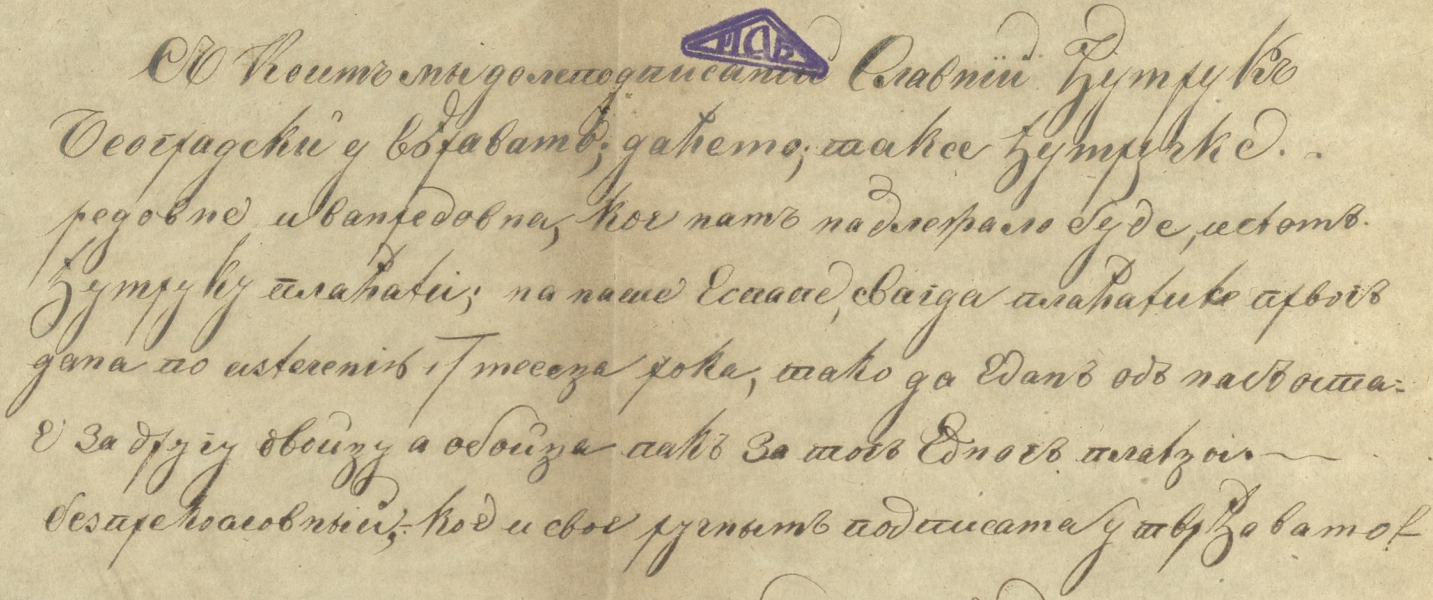 Съ Коимъ мы долеподписати Славнiй Ђумрукъ
Београдскiй увѣравамо, да ћемо, таксе ђумручке.
редовне и ванредовна, кое намъ надлежало буде, истомъ
Ђумруку плаћати; на наше Еснапе, свагда плаћатиће првогъ
дана по истеченiю месеца рока, тако да Еданъ одъ насъ оста=
е за другу двоицу а обоица пакъ за тогъ Едногъ платцои.
безпрекословный; кое и свое ручнымъ подписата утврђавамо